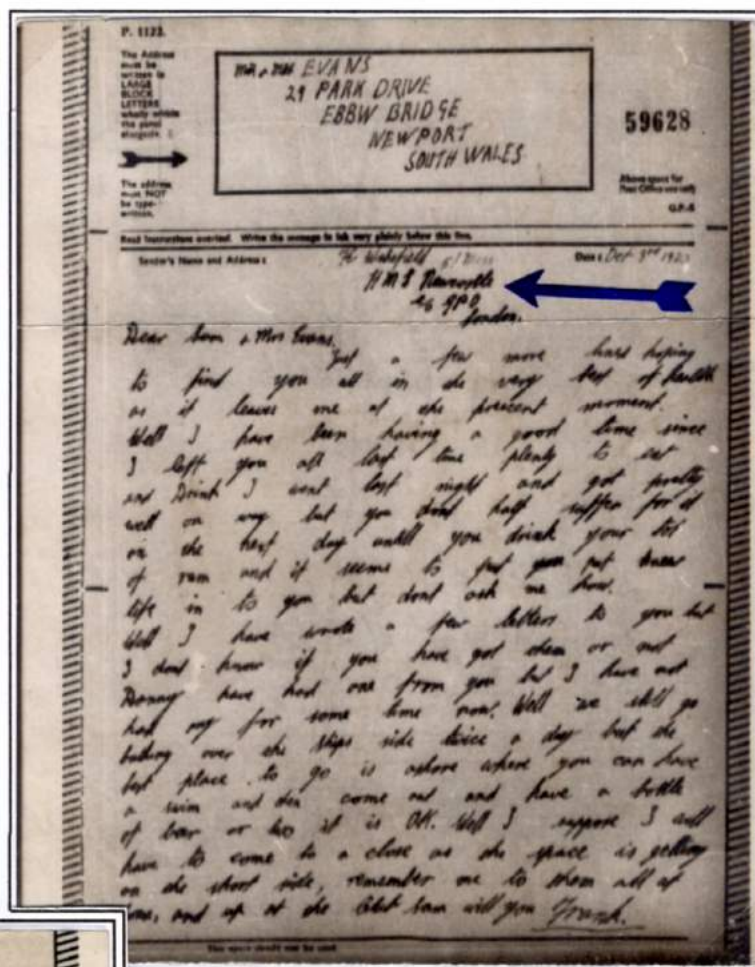 P. 1122.
The Address
must be
written in
LARGE
BLOCK
LETTERS
wholly within
the panel
alongside.
The address
must NOT
be type-
written.
Mr & Mrs EVANS
29 PARK DRIVE
EBBW BRIDGE
NEWPORT
SOUTH WALES
59628
Above space for
Post Office use only
G.P.S
Read instructions overleaf. Write the message in ink very plainly below this line.
Sender's Name and Address: Wakefield Date: 3rd
HMS Newcastle
c/o GPO
London.
Dear & Mrs Evans.
Just a few more lines hoping
to find you all in the very best of health
as it leaves me at the present moment.
Well I have been having a good time since
I left you all last time plenty to eat
and Drink I went last night and got pretty
well on way but you dont half suffer for it
on the next day untill you drink your tot
of rum and it seems to put new
life in to you but dont ask me how.
Well I have wrote a few letters to you but
I dont know if you have got them or not
Danny have had one from you but I have not
had any for some time now. Well we still go
bathing over the ships side twice a day but the
best place to go is ashore where you can have
a swim and then come out and have a bottle
of beer or two it is OK. Well I suppose I will
have to come to a close as the space is getting
on the short side, remember me to them all at
home, and up at the Club will you Frank.
This space should not be used